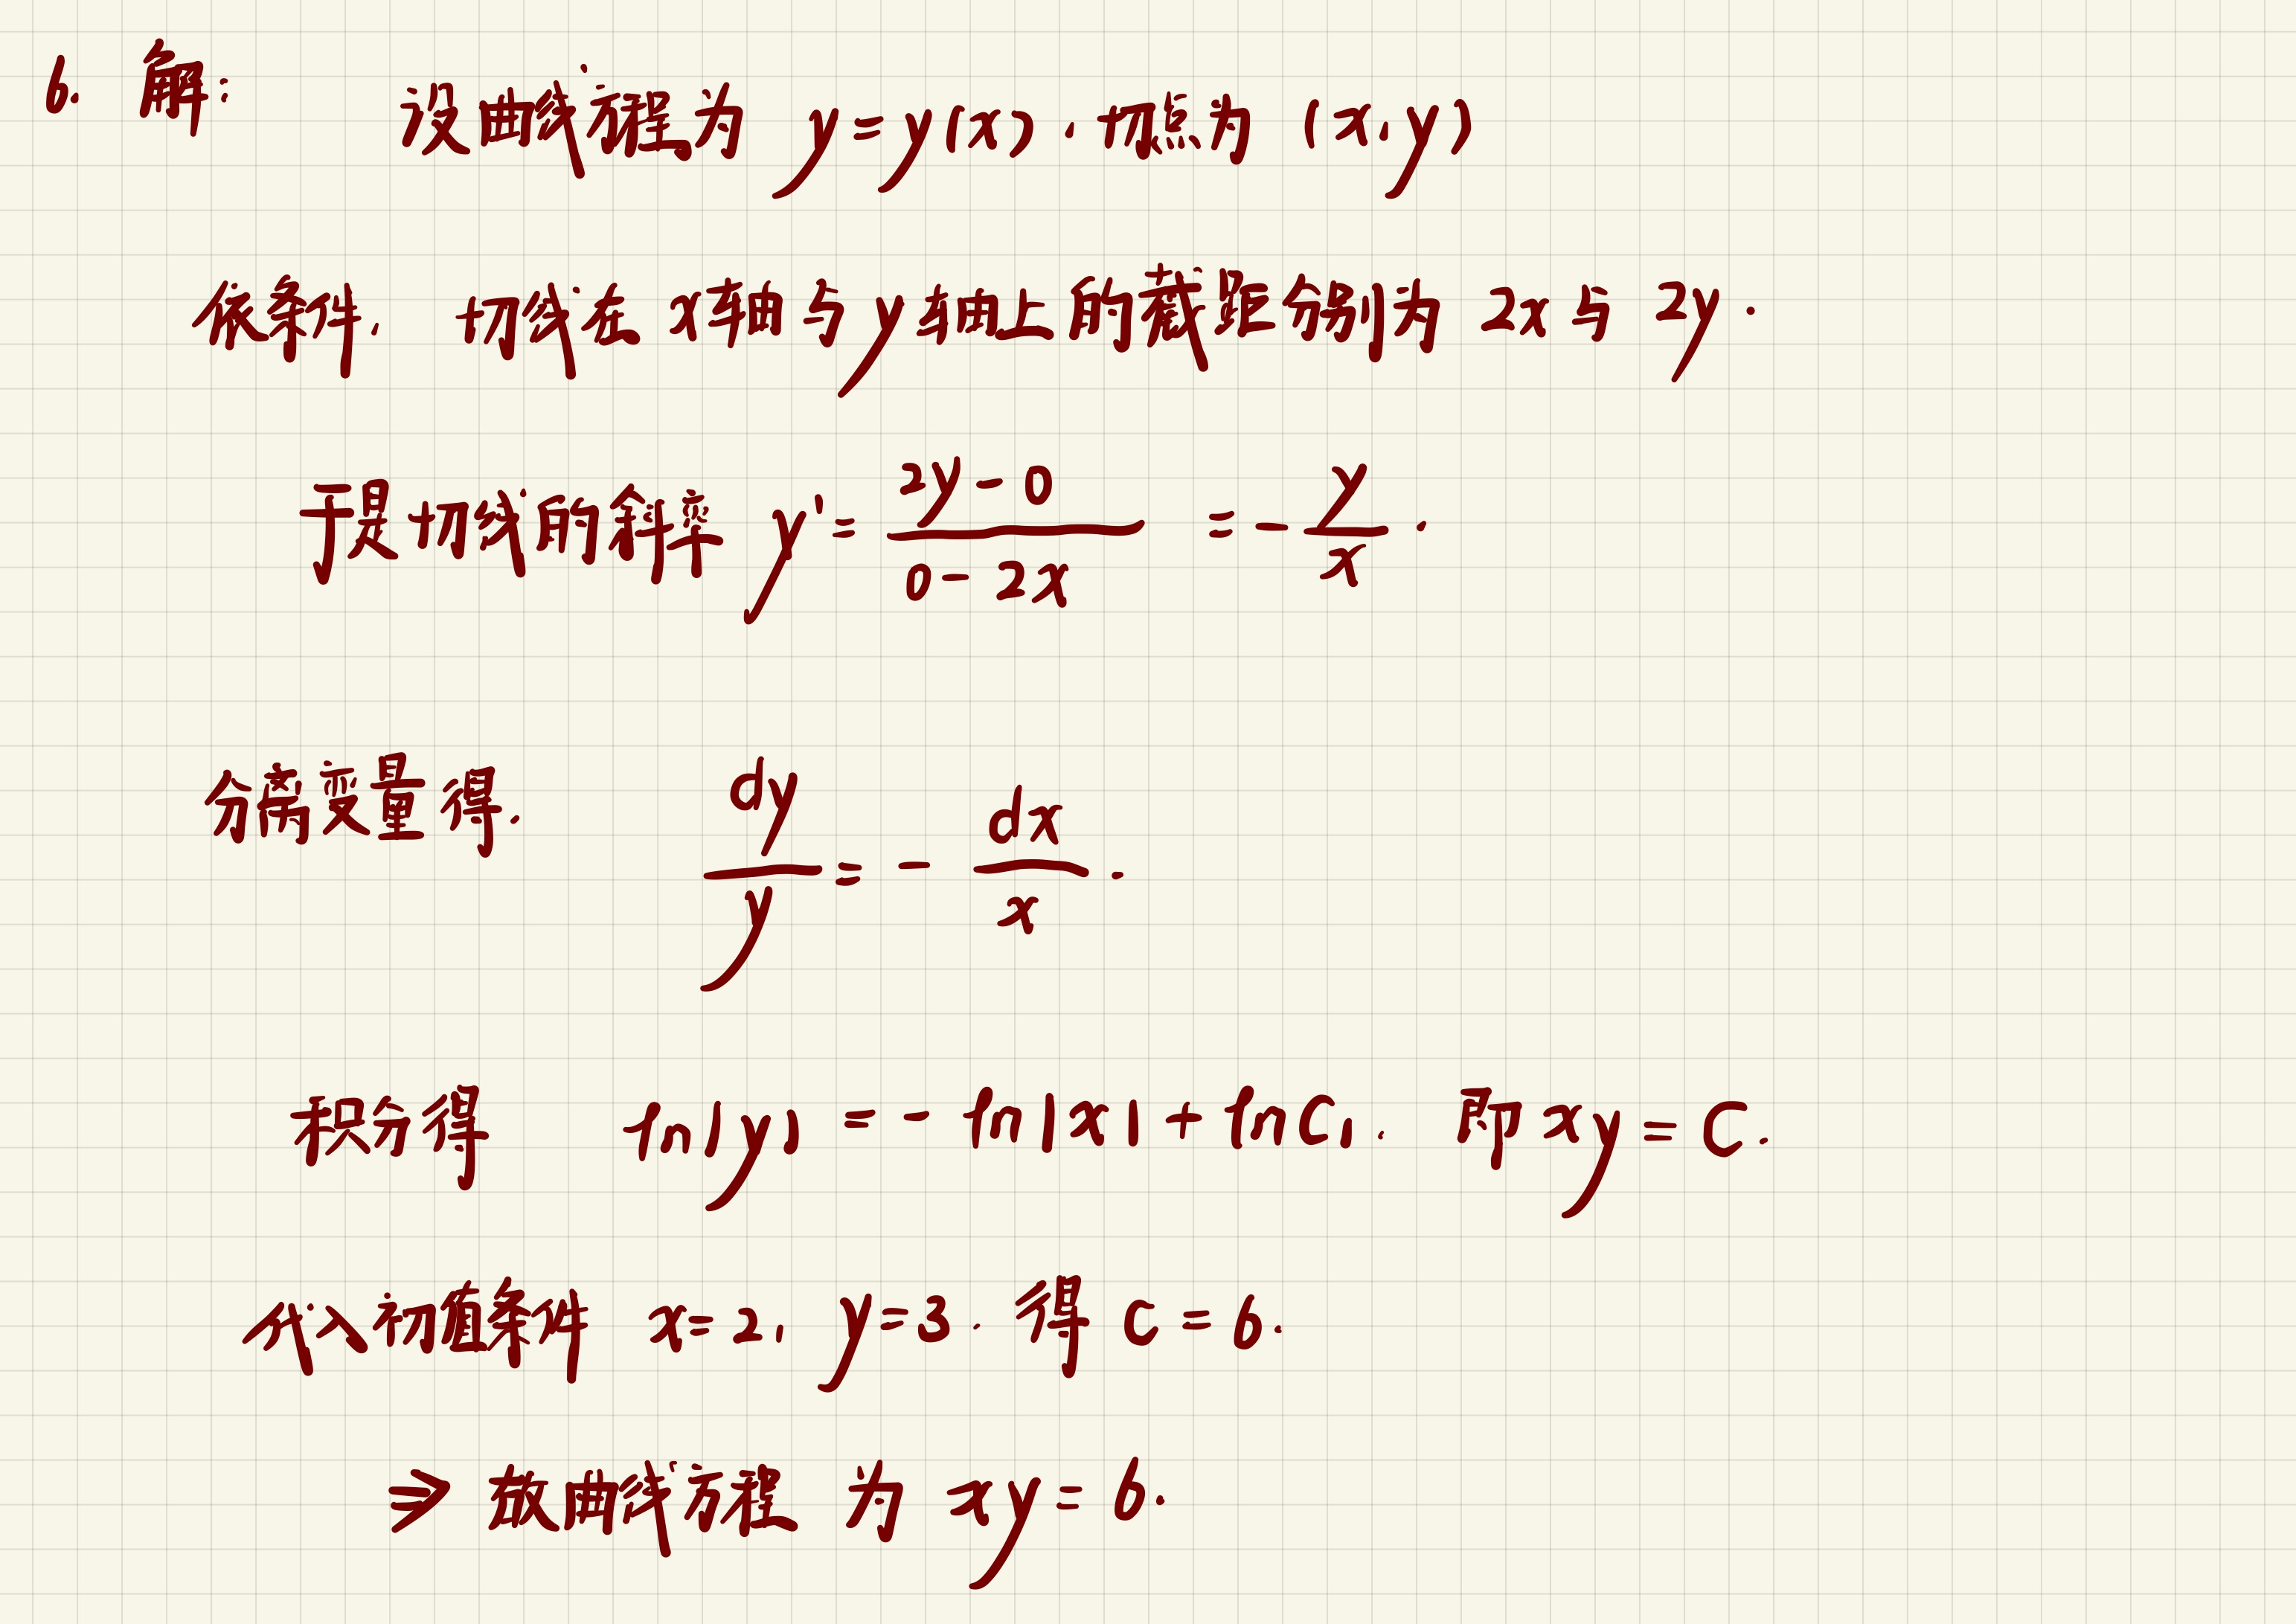 6. 解: 设曲线方程为 y=y(x), 切点为 (x,y)
依条件, 切线在 x轴与y轴上的截距分别为 2x与 2y.
于是切线的斜率 y' = \frac{2y-0}{0-2x} = -\frac{y}{x}.
分离变量得, \frac{dy}{y} = -\frac{dx}{x}.
积分得 ln|y| = -ln|x| + lnC₁, 即 xy = C.
代入初值条件 x=2, y=3, 得 C=6.
⇒ 故曲线方程 为 xy=6.